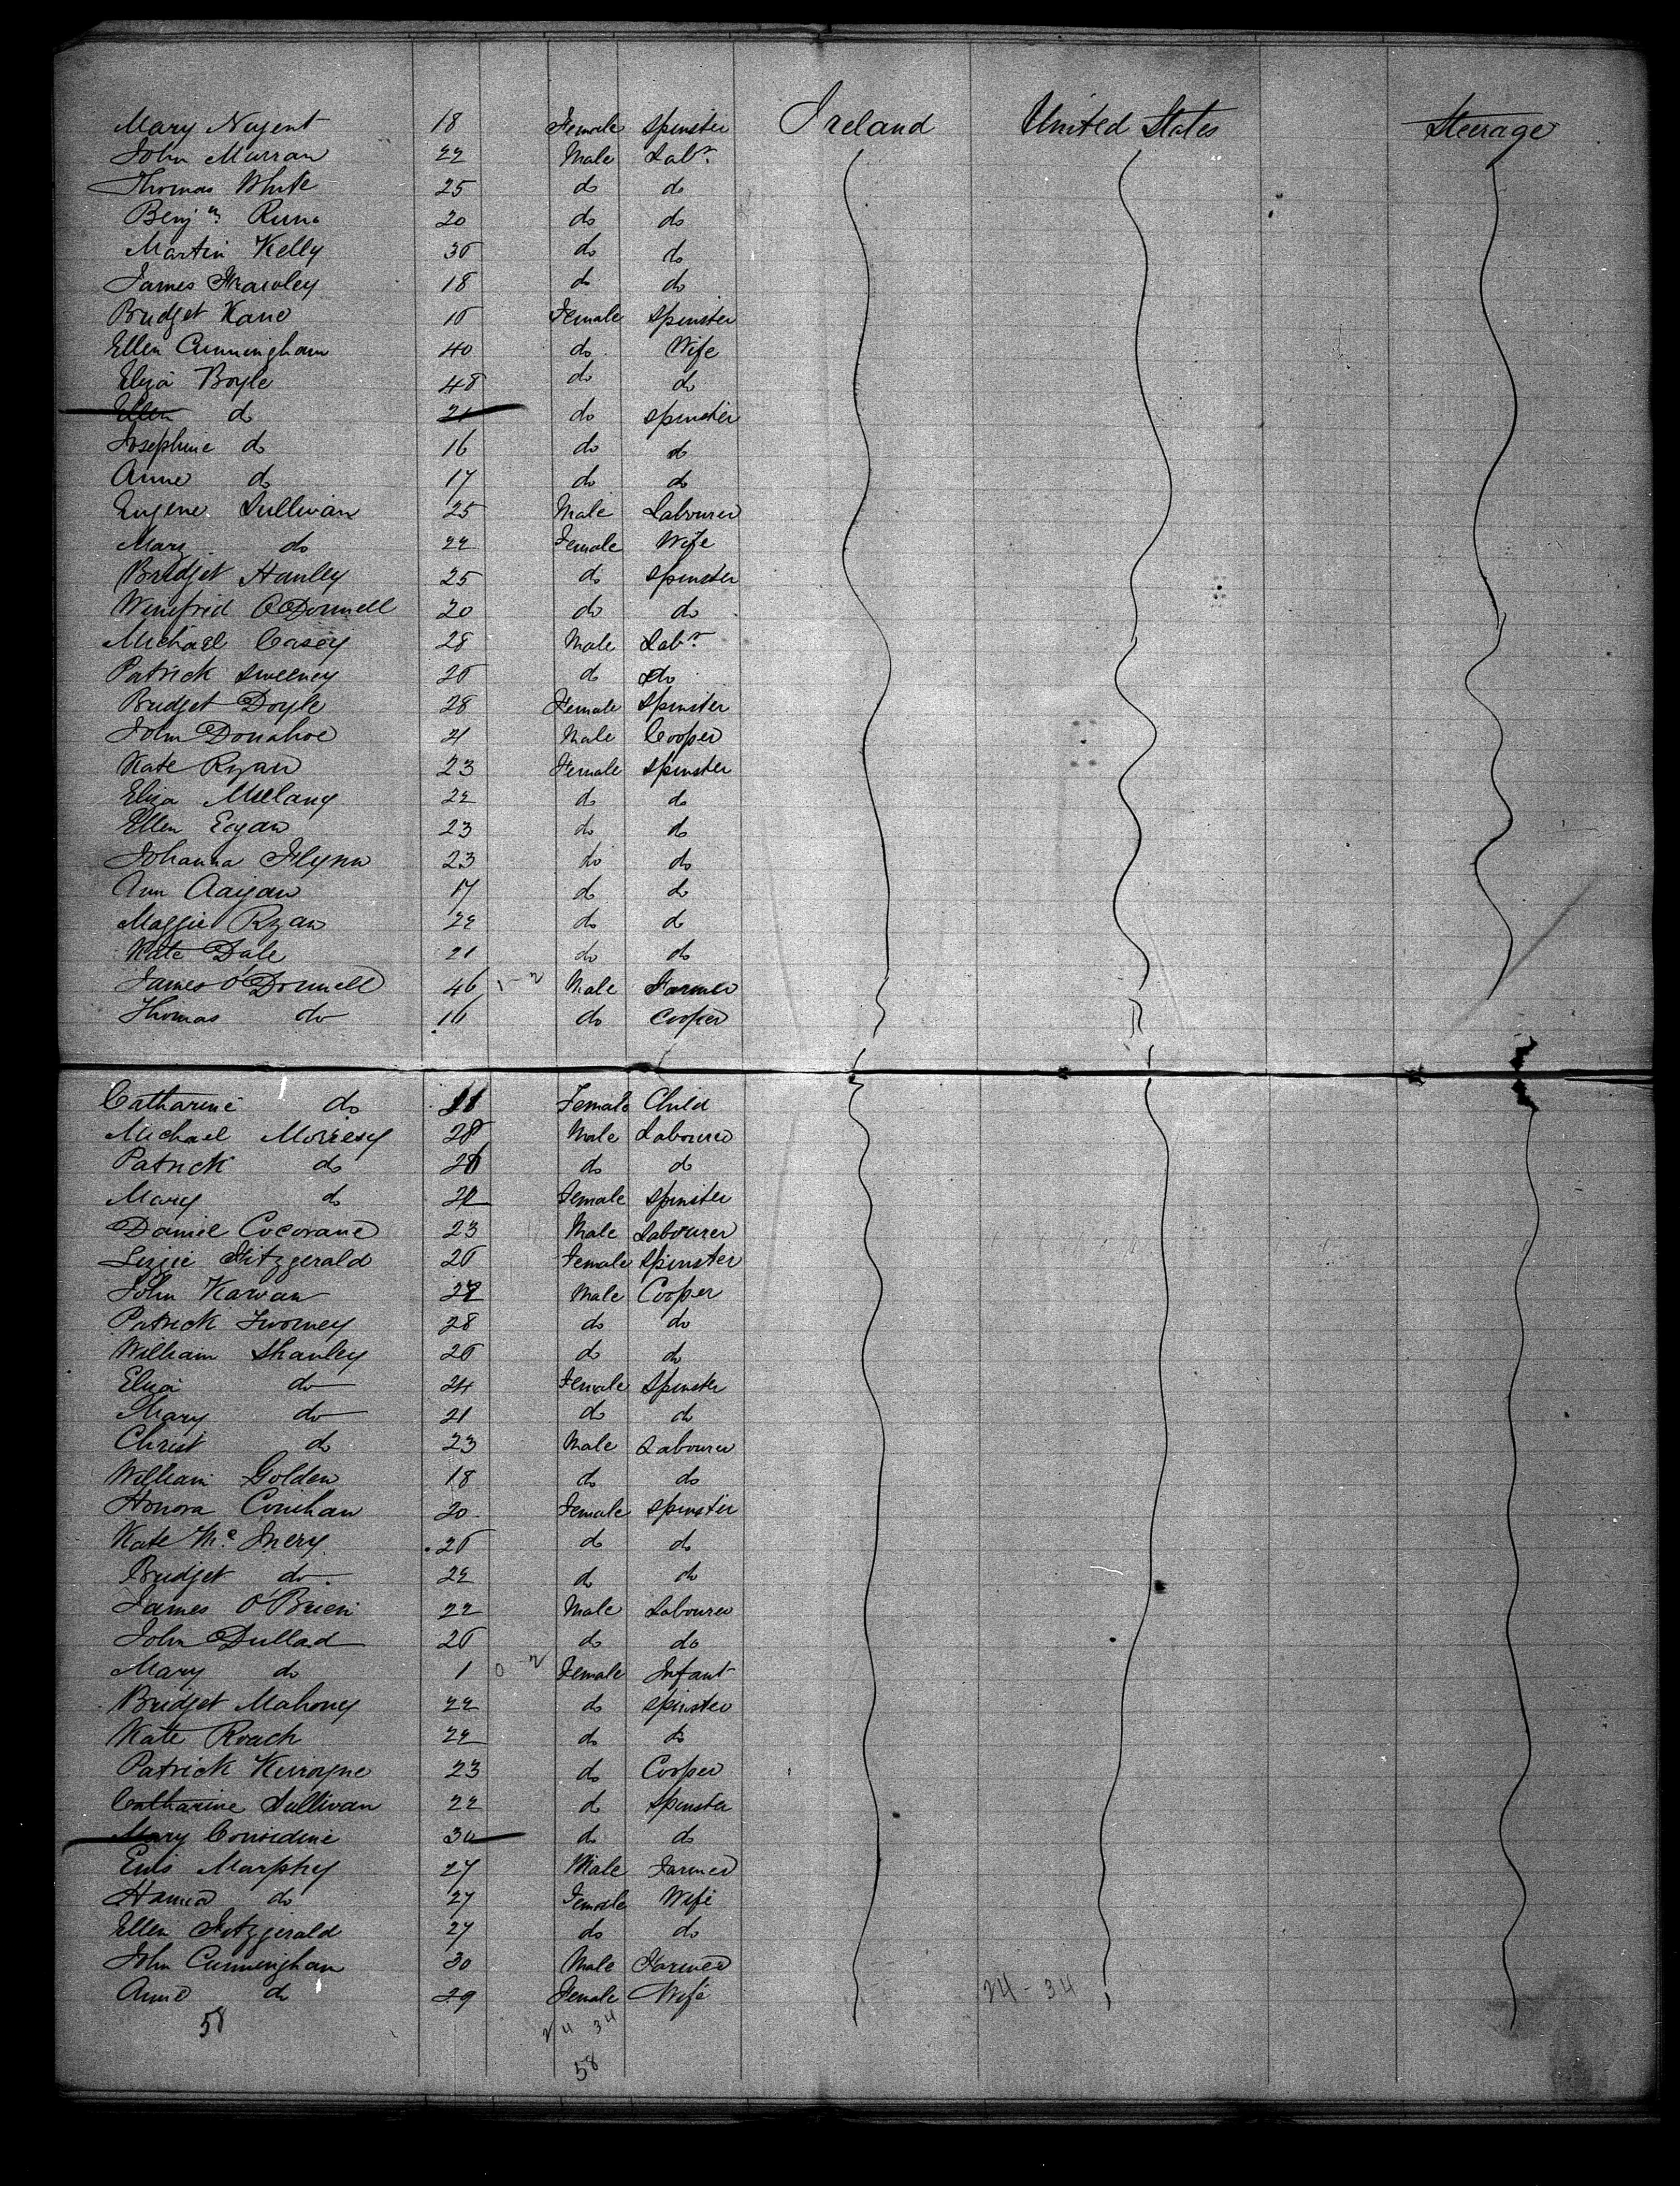 Mary Nugent 18 Female Spinster Ireland United States Steerage
John Murran 22 Male Labr.
Thomas White 25 do do
Benjn. 20 do do
Martin Kelly 30 do do
James Frawley 18 do do
Bridget Kane Female Spinster
Ellen Cunningham 40 do Wife
Eliza Boyle 48 do do
Ellen do 21 do Spinster
Josephine do 16 do do
Anne do 17 do do
Eugene Sullivan 25 Male Labourer
Mary do 22 Female Wife
Bridget Hanley 25 do Spinster
Winifrid O'Donnell 20 do do
Michael Casey 28 Male Labr.
Patrick Sweeney 20 do do
Bridget Doyle 28 Female Spinster
John Donahoe 21 Male Cooper
Kate Ryan 23 Female Spinster
Eliza Mullany 22 do do
Ellen Egan 23 do do
Johanna Flynn 23 do do
Ann 17 do do
Maggie Ryan 22 do do
Kate Dale 21 do do
James O'Donnell 46 1-2 Male Farmer
Thomas do 16 do Cooper
Catharine do 11 Female Child
Michael Morresy 28 Male Labourer
Patrick do do do
Mary do Female Spinster
Daniel Cocorane 23 Male Labourer
Lizzie Fitzgerald 20 Female Spinster
John Kawan Male Cooper
Patrick Twomey 28 do do
William Shanley 20 do do
Eliza do 24 Female Spinster
Mary do 21 do do
Christ do 23 Male Labourer
William Golden 18 do do
Honora Conihan 20 Female Spinster
Kate Mc. Inery 20 do do
Bridget do 22 do do
James O'Brien 22 Male Labourer
John Dullad 20 do do
Mary do 1 0-2 Female Infant
Bridget Mahony 22 do Spinster
Kate Roach 22 do do
Patrick 23 do Cooper
Catharine Sullivan 22 do Spinster
Mary Considine 30 do do
Murphy 27 Male Farmer
do 27 Female Wife
Ellen Fitzgerald 27 do do
John Cunningham 30 Male Farmer
Anne do 29 Female Wife 24-34
58 24 34
58